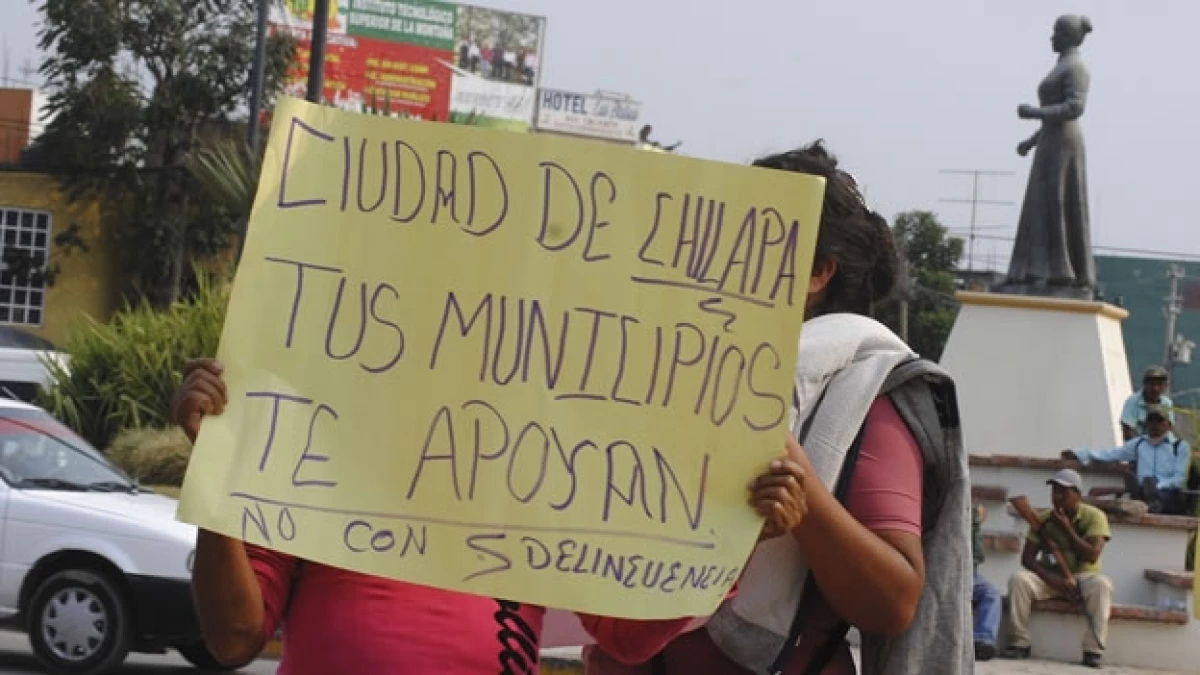 INSTITUTO TECNOLÓGICO
SUPERIOR DE LA MONTAÑA
HOTEL
CIUDAD DE CHILAPA
TUS MUNICIPIOS
TE APOYAN.
NO CON S DELINCUENCIA